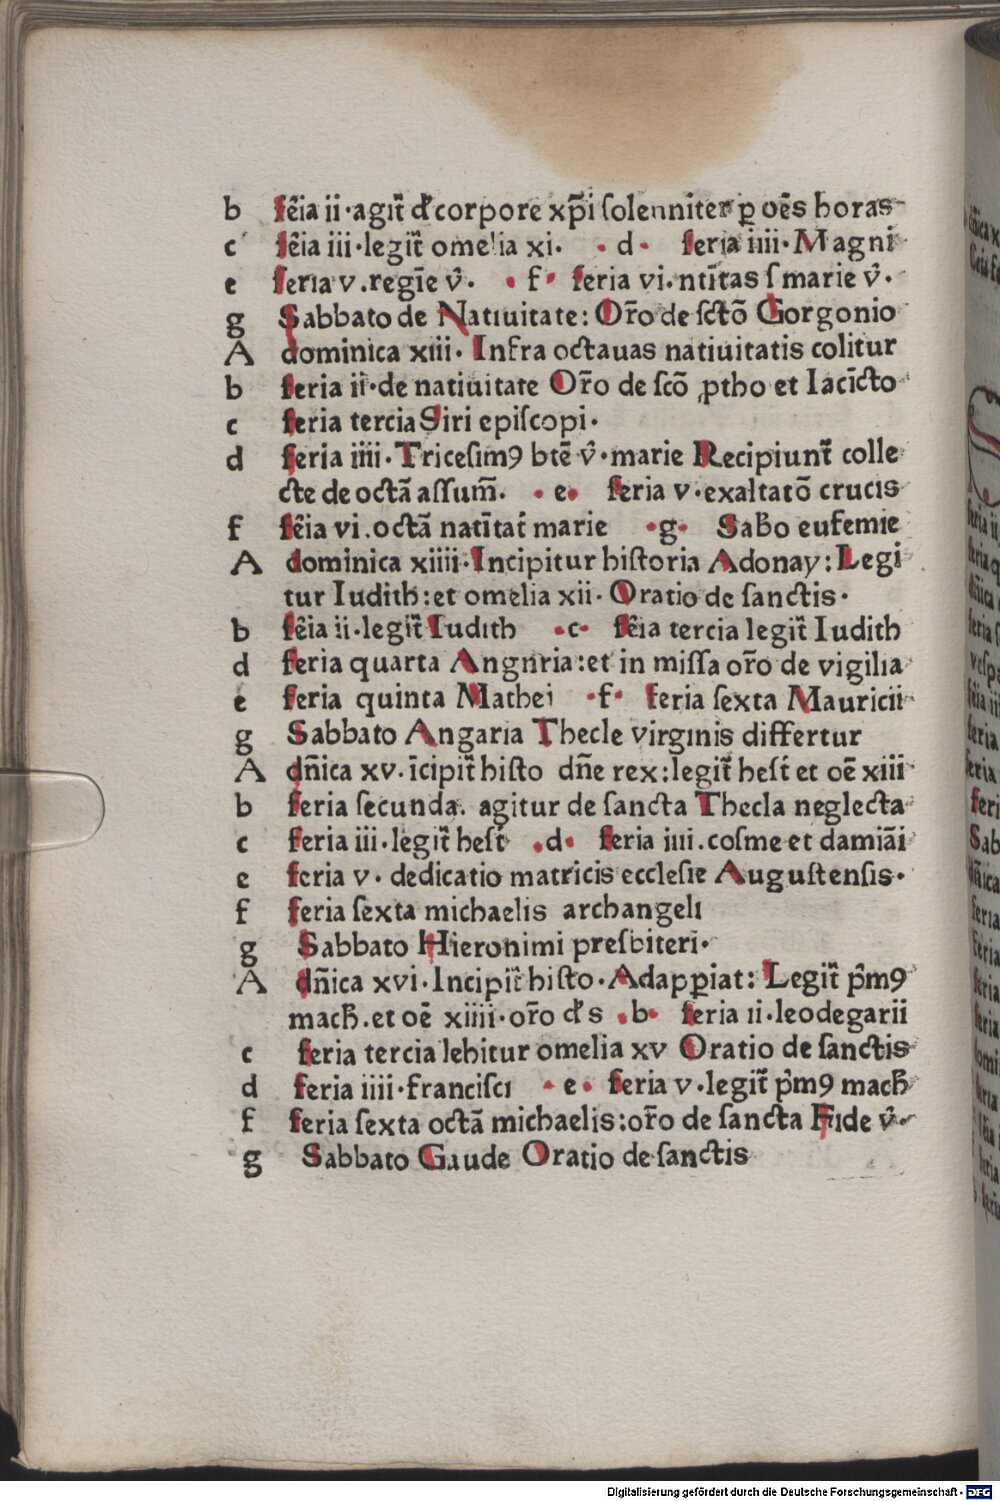 b fẽia ii·agit᷑ d̕ corpore xp̃i ſolenniter ꝑ oẽs horas
c fẽia iii·legit᷑ omelia xi. ·d· feria iiii·Magni
e feria v.regĩe v̓. ·f· feria vi.ntĩtas ſ marie v̓.
g Sabbato de Natiuitate: Or̃o de ſctõ Gorgonio
A dominica xiii· Infra octauas natiuitatis colitur
b feria ii·de natiuitate Or̃o de ſcõ ꝓtho et Iacĩcto
c feria tercia Siri epiſcopi·
d feria iiii·Triceſimꝰ btẽ v̓·marie Recipiunt᷑ colle
cte de octã aſſum̃. ·e· feria v·exaltatõ crucis
f fẽia vi.octã natĩtat᷑ marie ·g· Sabo̅ eufemie
A dominica xiiii·Incipitur hiſtoria Adonay:Legi
tur Iudith:et omelia xii· Oratio de ſanctis·
b fẽia ii·legit᷑ Iudith ·c· fẽia tercia legit᷑ Iudith
d feria quarta Angnria:et in miſſa or̃o de vigilia
e feria quinta Mathei ·f· feria ſexta Mauricii
g Sabbato Angaria Thecle virginis differtur
A dñica xv.ĩcipit᷑ hiſto dñe rex:legit᷑ heſt᷑ et oẽ xiii
b feria ſecunda. agitur de ſancta Thecla neglecta
c feria iii·legit᷑ heſt᷑ .d· feria iiii.coſme et damiãi
e feria v. dedicatio matricis eccleſie Auguſtenſis.
f feria ſexta michaelis archangeli
g Sabbato Hieronimi preſbiteri·
A dñica xvi.Incipit᷑ hiſto·Adapꝑiat: Legit᷑ p̃mꝰ
mach̃.et oẽ xiiii·or̃o d̕ s .b· feria ii·leodegarii
c feria tercia lebitur omelia xv Oratio de ſanctis
d feria iiii·franciſci ·e· feria v·legit᷑ p̃mꝰ mach̃
f feria ſexta octã michaelis:or̃o de ſancta Fide v̓.
g Sabbato Gaude Oratio de ſanctis
Digitalisierung gefördert durch die Deutsche Forschungsgemeinschaft - DFG